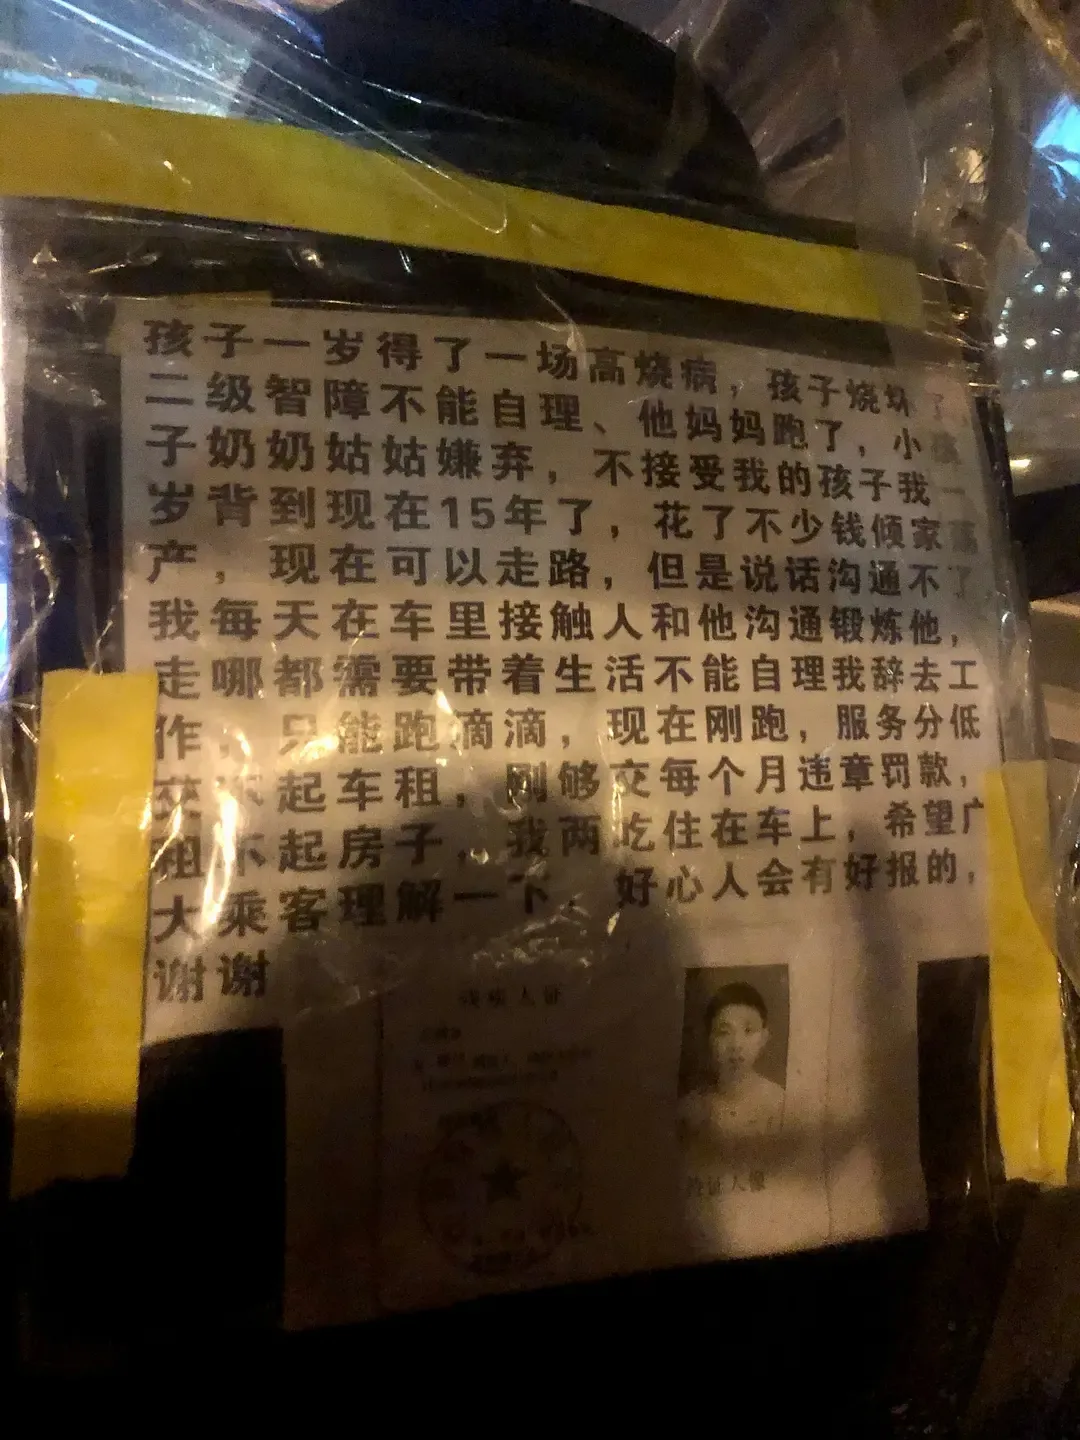 孩子一岁得了一场高烧病，孩子烧坏了，
二级智障不能自理、他妈妈跑了，小孩
子奶奶姑姑嫌弃，不接受我的孩子我一
岁背到现在15年了，花了不少钱倾家荡
产，现在可以走路，但是说话沟通不了，
我每天在车里接触人和他沟通锻炼他，
走哪都需要带着生活不能自理我辞去工
作，只能跑滴滴，现在刚跑，服务分低
获不起车租，刚够交每个月违章罚款，
租不起房子，我两吃住在车上，希望广
大乘客理解一下，好心人会有好报的，
谢谢
残疾人证